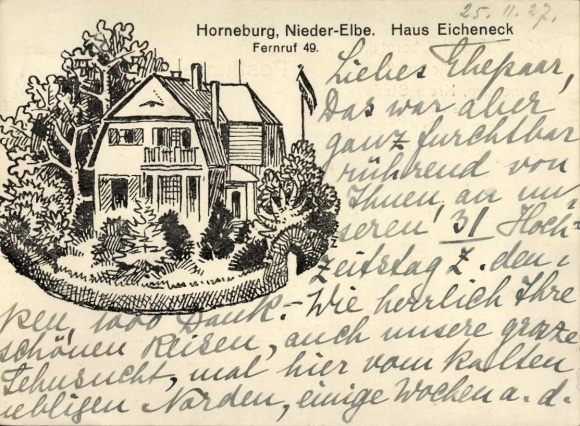 25. 11. 27.
Horneburg, Nieder-Elbe. Haus Eicheneck
Fernruf 49.
Liebes Ehepaar,
Das war aber
ganz furchtbar
rührend von
Ihnen, an un-
seren 31 Hoch-
zeitstag z. den-
ken, 1000 Dank. - Wie herrlich Ihre
schönen Reisen, auch unsere groze
Sehnsucht, mal hier vom kalten
nebligen Norden, einige Wochen a. d.